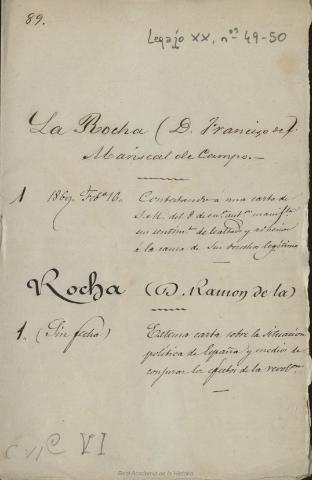 89.
Legajo XX, nos 49-50
La Rocha (D. Francisco de)
Mariscal de Campo.—
1 1869. Feb.o 16. Contestando a una carta de
S.M. del 8 de en manifta
un sentimto de lealtad y adhesion
á la causa de Su derecha legítima
Rocha (D. Ramon de la)
1. (Sin fecha) Extensa carta sobre la situacion
política de España y medios de
conjurar los efectos de la revolon
C VI C VI
Real Academia de la Historia